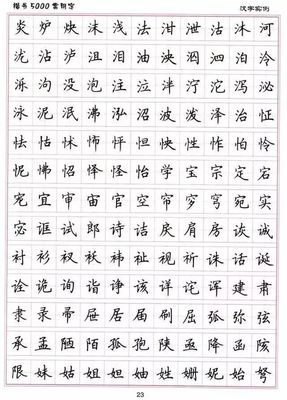 楷书5000常用字 汉字实例
炎 炉 炔 沫 浅 法 泔 泄 沽 沭 河
沾 泸 沮 泪 油 泱 泅 泗 泊 泠
泺 没 泡 注 泣 泞 沱 泻 泌
泳 泥 泯 沸 泓 沼 波 泼 泽 治 怔
怯 怙 怵 怖 怦 怛 怏 性 怍 怕 怜
怩 怫 怊 怿 怪 怡 学 宝 宗 定 宕
宠 宜 审 宙 官 空 帘 穸 穹 宛 实
宓 诓 试 郎 诗 诘 戾 肩 房 诙 诚
衬 衫 衩 袄 祎 祉 视 祈 诛 话 诞
诠 诡 询 诣 诤 该 详 诧 诨 建 肃
隶 录 帚 屉 居 届 刷 屈 弧 弥 弦
承 孟 陋 陌 孤 孢 陕 亟 降 函 陔
限 妹 姑 姐 妲 妯 姓 姗 妮 始
23